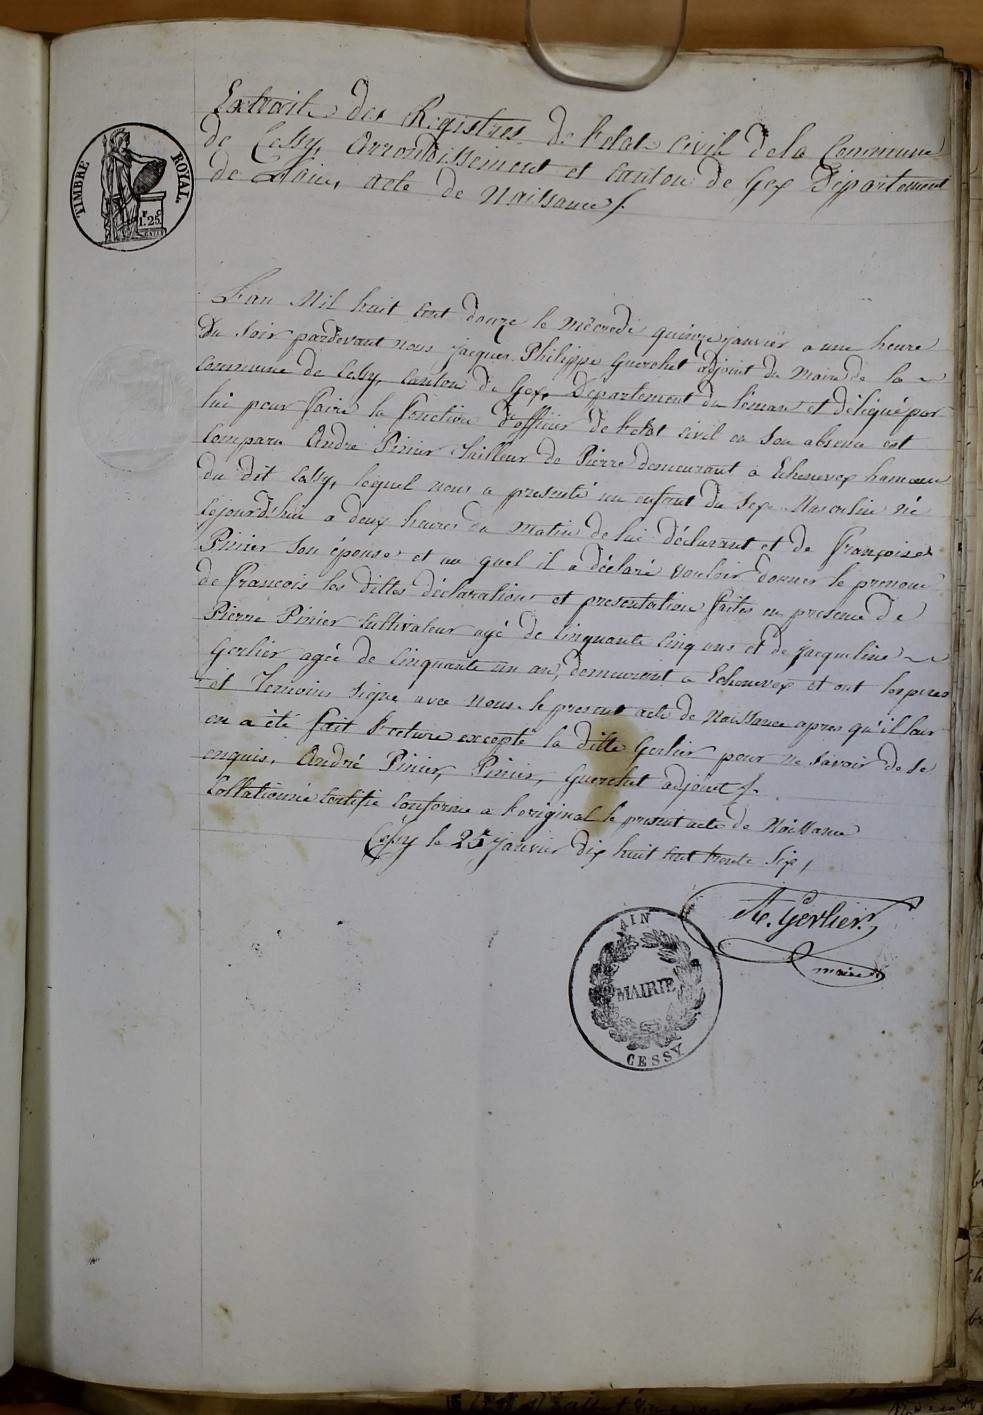 TIMBRE ROYAL
1. 25
Extrait des Registres de l'etat civil de la Commune
de Cessy, Arrondissement et Canton de Gex Département
de L'ain, acte de Naissance /.
L'an Mil huit cent douze le mécredi quinze janvier a une heure
du soir pardevant nous Jacques Philippe Guerchet adjoint du Maire de la
commune de Cessy, canton de Gex, Département du Léman et délégué par
lui pour faire la fonction d'officier de l'etat civil en son absence est
comparu André Pinier Tailleur de Pierre demeurant à Echenevex hameau
du dit Cessy, lequel nous a presenté un enfant du sexe Masculin né
cejourd'hui a deux heures du matin de lui déclarant et de Françoise
Pinier son épouse et au quel il a déclaré vouloir donner le prenom
de François les dittes déclaration et presentation faites en presence de
Pierre Pinier cultivateur agé de cinquante cinq ans et de Jacqueline
Gerlier agée de cinquante un an, demeurant a Echenevex et ont les peres
et Temoins signe avec nous le present acte de Naissance apres qu'il leur
en a été fait lecture excepté la ditte Gerlier pour ne savoir de ce
enquis. André Pinier, Pinier, Guerchet adjoint /.
Collationné certifie conforme a l'original le present acte de Naissance
Cessy le 25 janvier dix huit cent trente six,
Gerlier
maire
AIN
MAIRIE
CESSY